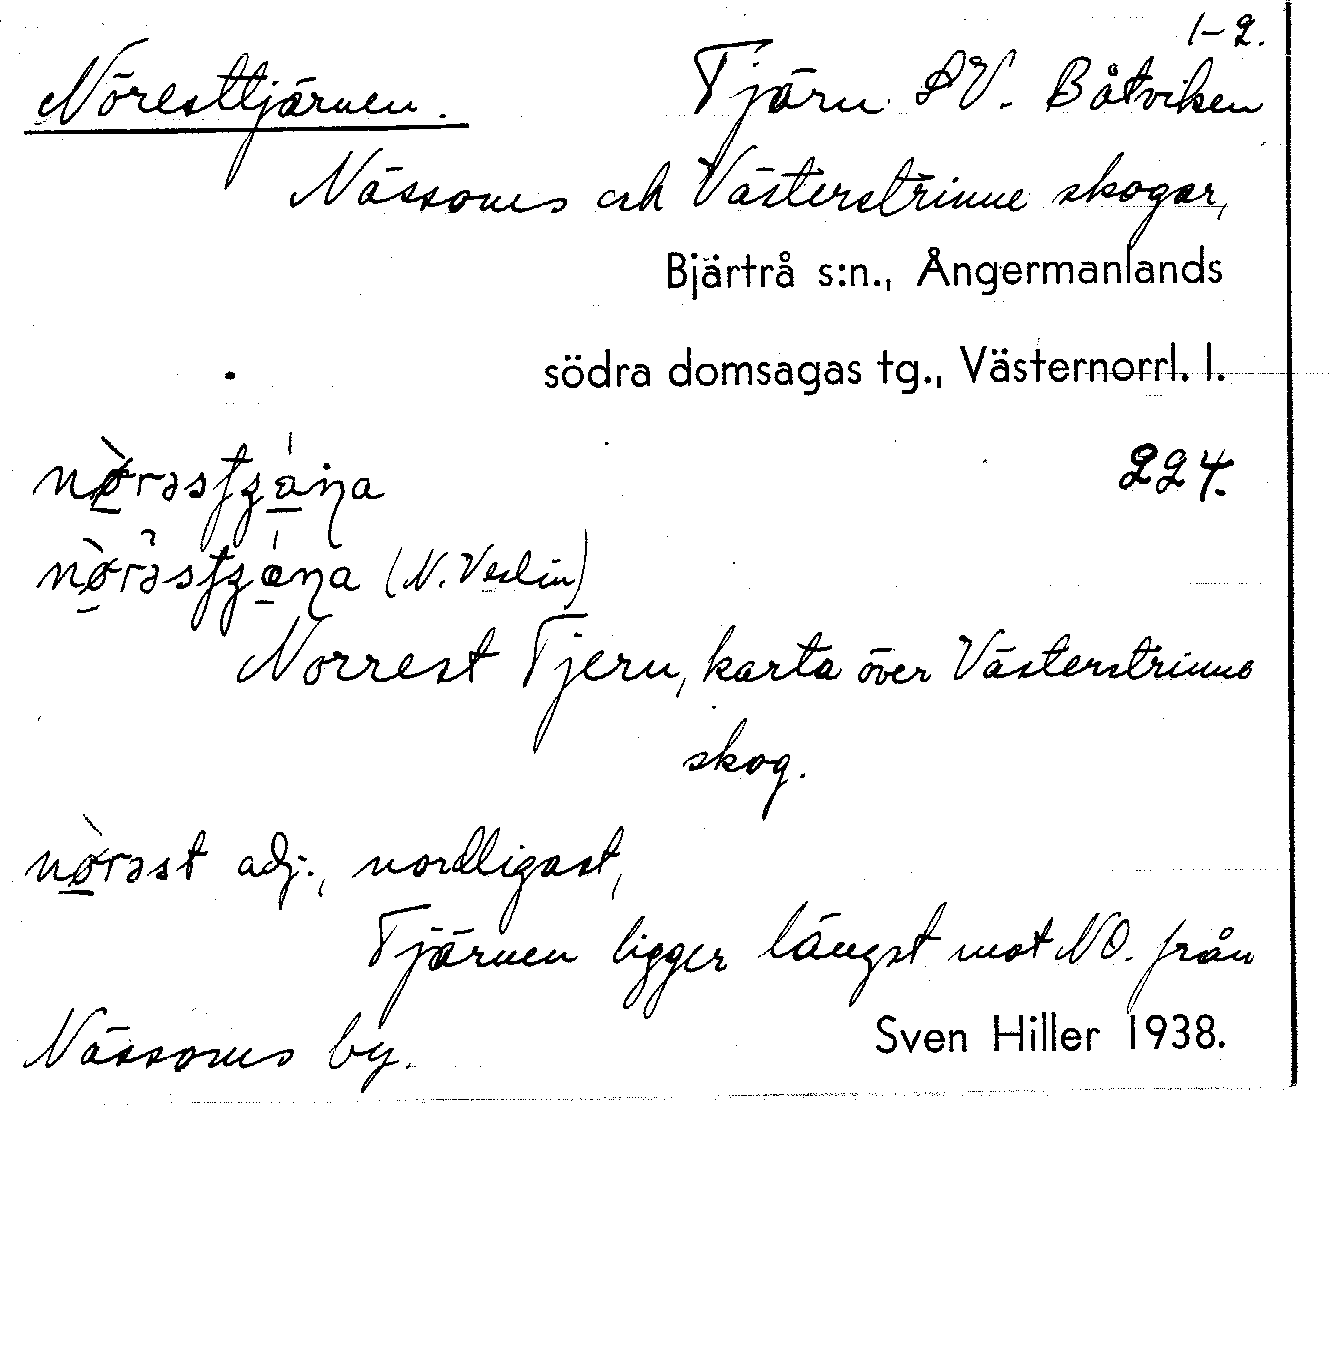 1-2.
Nöresttjärnen. Tjärn SV. Båtviken
Nässoms och Västerstrinne skogar,
Bjärtrå s:n., Ångermanlands
södra domsagas tg., Västernorrl. l.
224.
(N. Veslin)
Norrest Tjern, karta över Västerstrinne
skog.
adj., nordligast,
Tjärnen ligger längst mot NO. från
Nässoms by. Sven Hiller 1938.